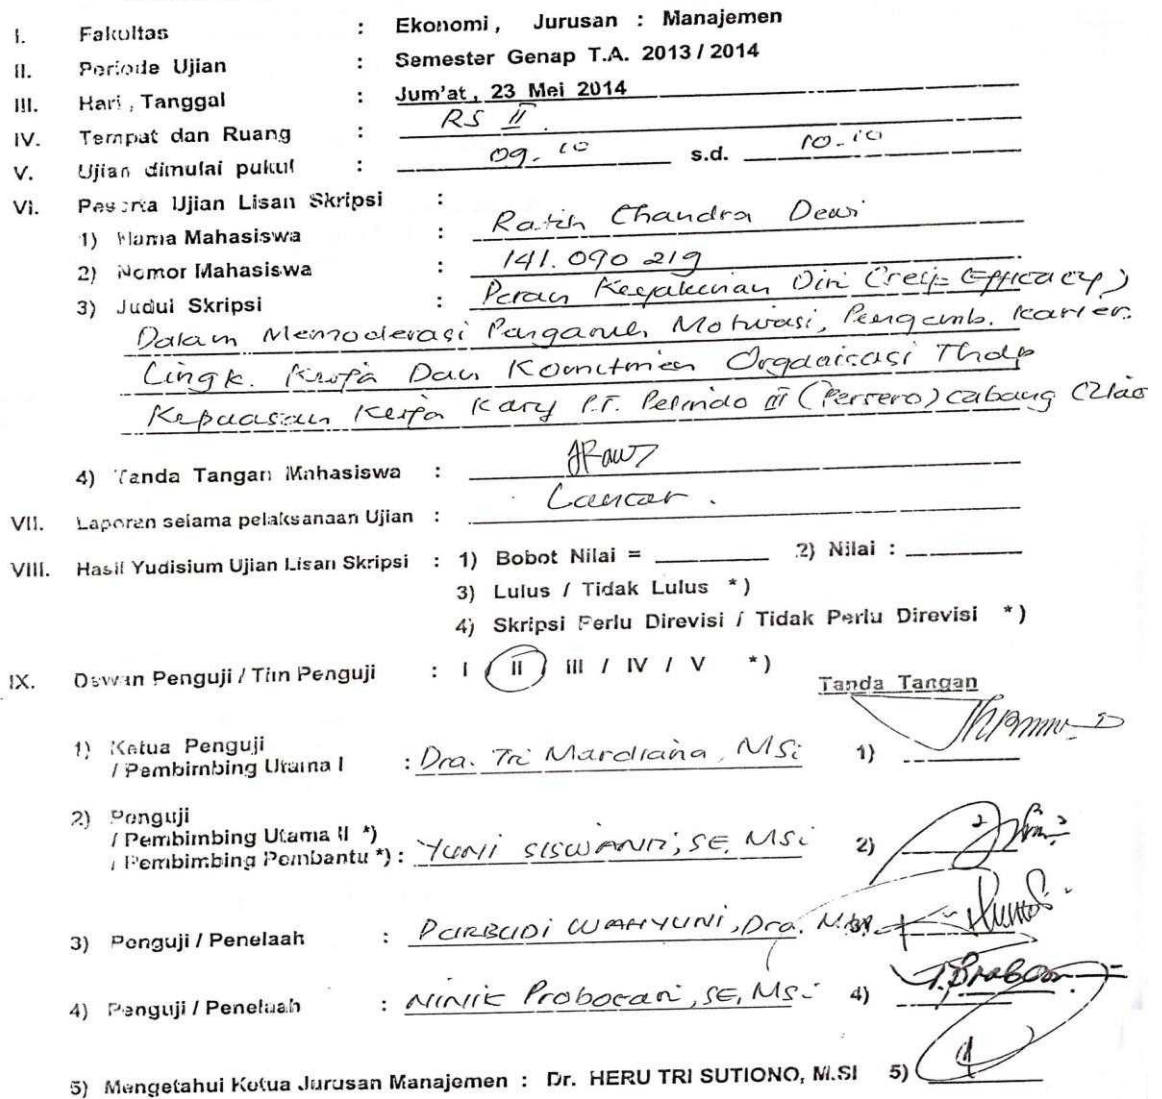 I. Fakultas : Ekonomi, Jurusan : Manajemen
II. Periode Ujian : Semester Genap T.A. 2013 / 2014
III. Hari, Tanggal : Jum'at, 23 Mei 2014
IV. Tempat dan Ruang : RS II.
V. Ujian dimulai pukul : 09.10 s.d. 10.10
VI. Peserta Ujian Lisan Skripsi :
1) Nama Mahasiswa : Ratih Chandra Dewi
2) Nomor Mahasiswa : 141.090 219
3) Judul Skripsi : Peran Keyakinan Diri (Self Efficacy)
Dalam Memoderasi Pengaruh Motivasi, Pengemb. Karier.
Lingk. Kerja Dan Komitmen Organisasi Thdp
Kepuasan Kerja Kary P.T. Pelindo III (Persero) cabang
4) Tanda Tangan Mahasiswa :
VII. Laporan selama pelaksanaan Ujian : Lancar.
VIII. Hasil Yudisium Ujian Lisan Skripsi : 1) Bobot Nilai = 2) Nilai :
3) Lulus / Tidak Lulus *)
4) Skripsi Perlu Direvisi / Tidak Perlu Direvisi *)
IX. Dewan Penguji / Tim Penguji : I / II / III / IV / V *)
Tanda Tangan
1) Ketua Penguji
/ Pembimbing Utama I : Dra. Tri Mardiana, MSi 1)
2) Penguji
/ Pembimbing Utama II *)
/ Pembimbing Pembantu *) : Yuni Siswanti, SE, MSi 2)
3) Penguji / Penelaah : Purbudi Wahyuni, Dra. 3)
4) Penguji / Penelaah : Ninik Probosari, SE, MSi 4)
5) Mengetahui Ketua Jurusan Manajemen : Dr. HERU TRI SUTIONO, M.SI 5)